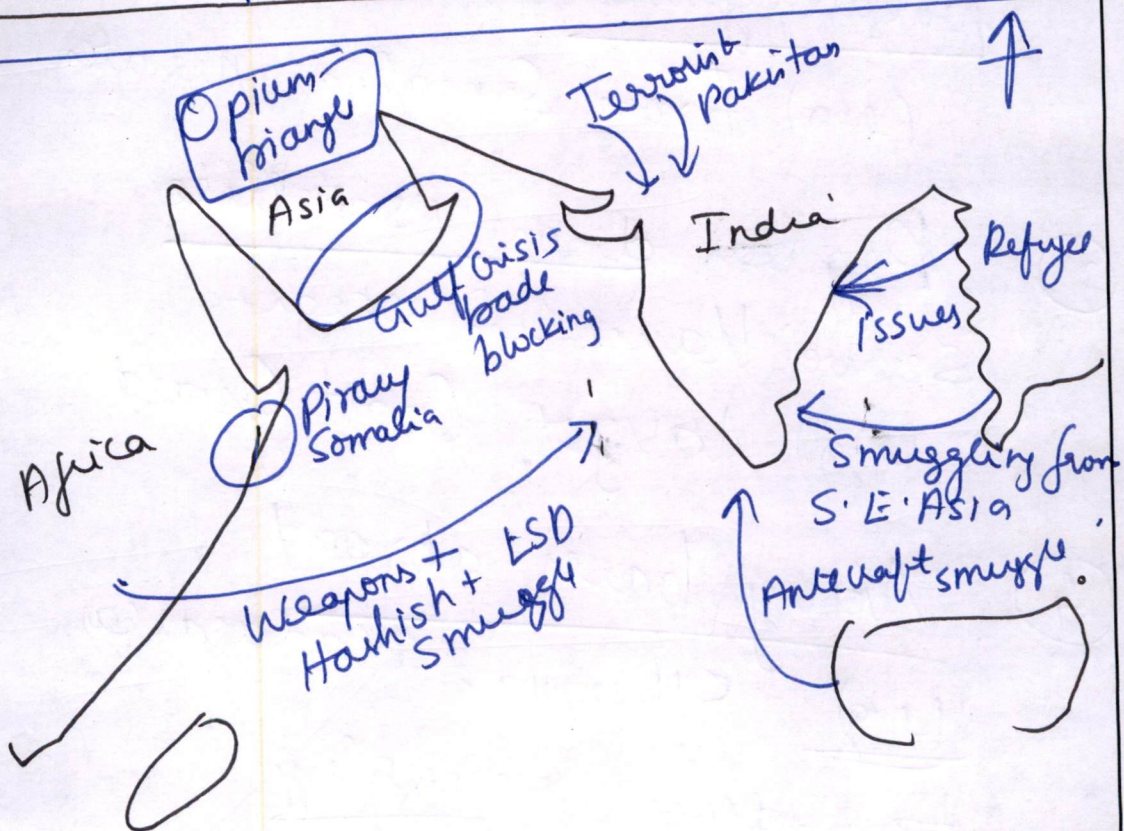 Opium
triangle
Asia
Terrorist
Pakistan
India
Refugee
issues
Gulf Crisis
trade
blocking
Piracy
Somalia
Africa
Smuggling from
S.E. Asia
Weapons + LSD
Hashish + Smuggle
smuggle.